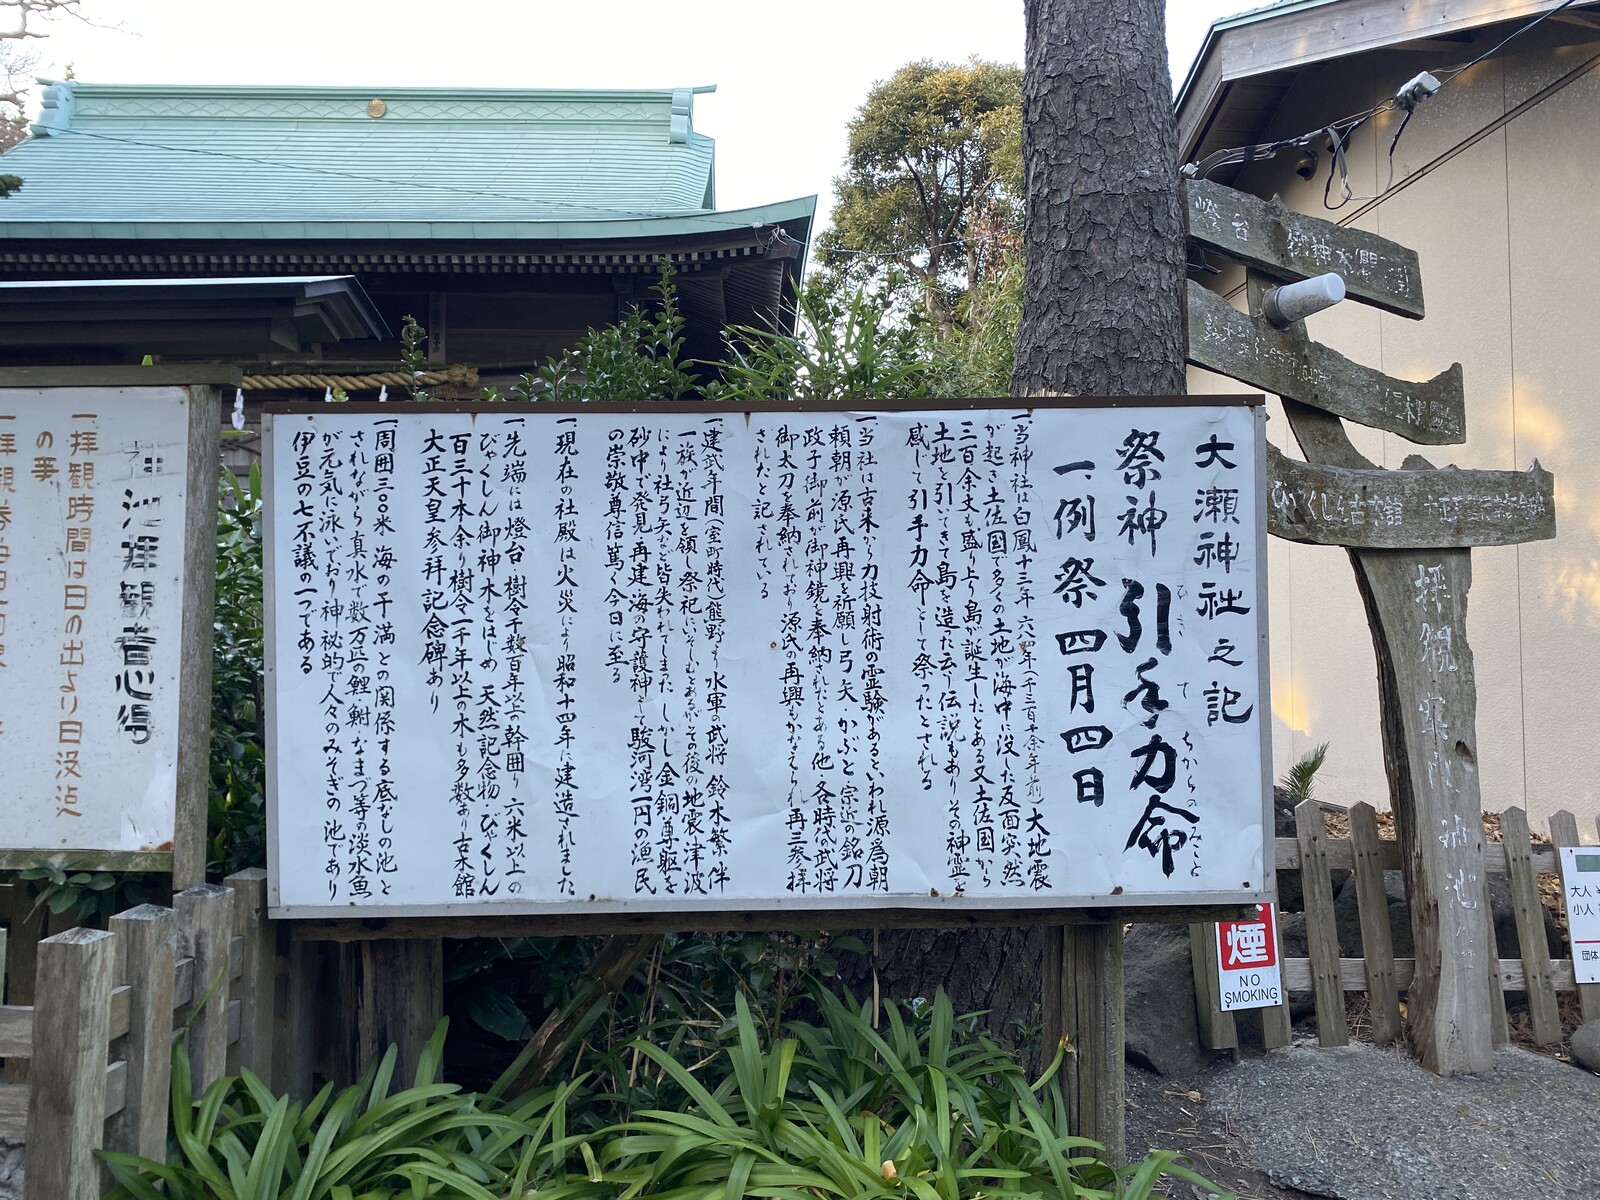 大瀬神社之記
祭神 引手力命
ひき て ちからのみこと
一、例祭 四月四日
一、当神社は白鳳十三年六八四年(千三百十余年前)大地震
が起き土佐国で多くの土地が海中に没した反面突然
三百余丈も盛り上り島が誕生したとある又土佐国から
土地を引いてきて島を造った云う伝説もありその神霊を
感じて引手力命として祭ったとされる
一、当社は古来から力技射術の霊験があるといわれ源為朝
頼朝が源氏再興を祈願し弓 矢 かぶと 宗近の銘刀
政子御前が御神鏡を奉納されたとある他 各時代の武将
御太刀を奉納されており源氏の再興もかなえられ再三参拝
されたと記されている
一、建武年間(室町時代)熊野より水軍の武将 鈴木繁伴
一族が近辺を領し祭祀にいそしむとあるが その後の地震 津波
により社弓矢など皆失われてしまった しかし金銅尊躯を
砂中で発見 再建 海の守護神として駿河湾一円の漁民
の崇敬尊信篤く今日に至る
一、現在の社殿は火災により昭和十四年に建造されました
一、先端には燈台 樹令千数百年以上の幹囲り 六米以上の
びゃくしん御神木をはじめ 天然記念物・びゃくしん
百三十本余り樹令一千年以上の木も多数あり古木館
大正天皇参拝記念碑あり
一、周囲三〇〇米 海の干満との関係する底なしの池と
されながら真水で数万匹の鯉 鮒 なまづ等の淡水魚
が元気に泳いでおり神秘的で人々のみそぎの池であり
伊豆の七不議の一つである
神池拝観者心得
一、拝観時間は日の出より日没迄
の事
燈台
びゃくしん古木館
拝観
神池
煙
NO
SMOKING
大人
小人
団体